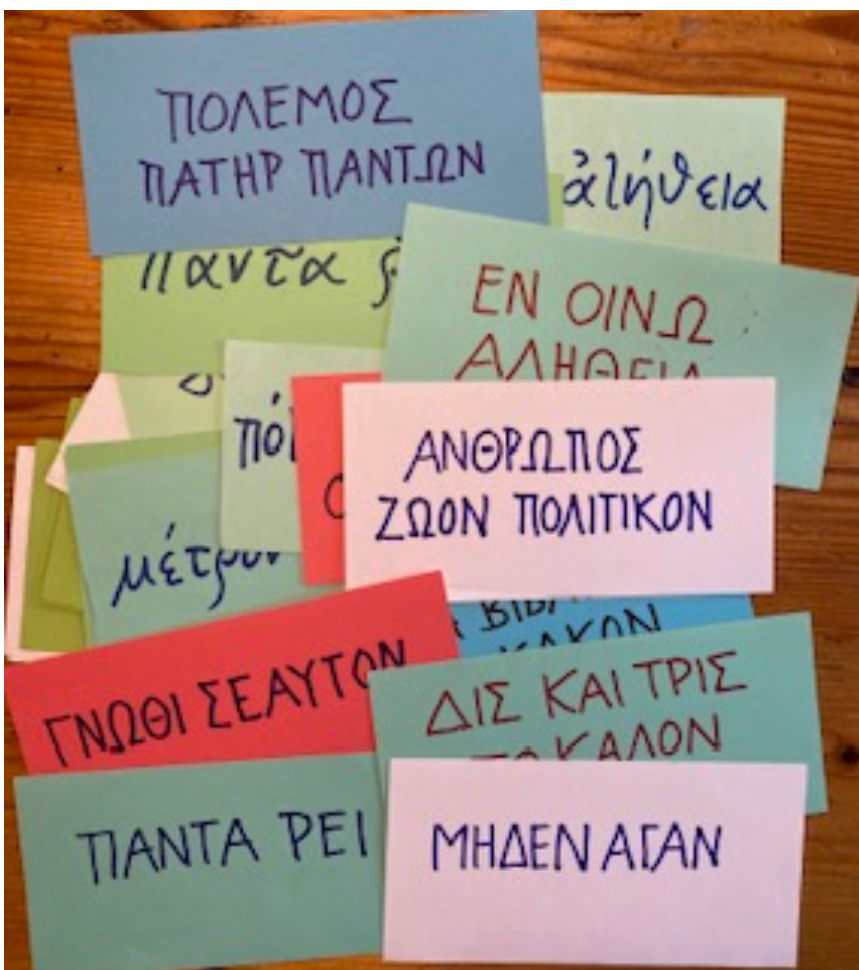 ΠΟΛΕΜΟΣ
ΠΑΤΗΡ ΠΑΝΤΩΝ
ἀλήθεια
παντα
ΕΝ ΟΙΝΩ
ΑΛΗΘΕΙΑ
ΑΝΘΡΩΠΟΣ
ΖΩΟΝ ΠΟΛΙΤΙΚΟΝ
μέτρον
ΚΑΚΟΝ
ΓΝΩΘΙ ΣΕΑΥΤΟΝ
ΔΙΣ ΚΑΙ ΤΡΙΣ
ΤΟ ΚΑΛΟΝ
ΠΑΝΤΑ ῬΕΙ
ΜΗΔΕΝ ΑΓΑΝ